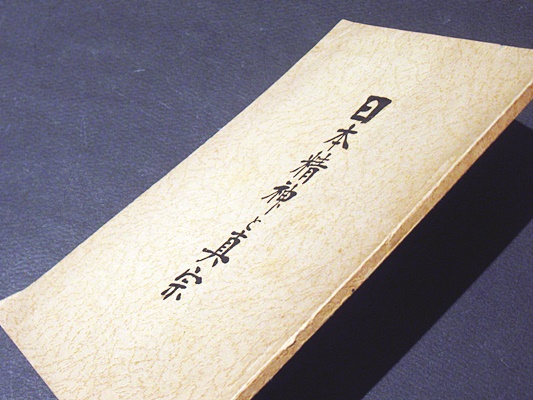 日本精神と真宗